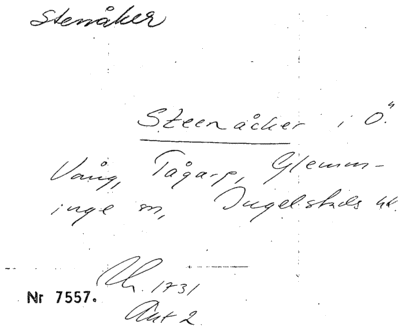 Stenåker
Steenåcker i Ö.
Vång, Tågarp, Glemm-
inge sn, Ingelstads hd.
Lh. 1731
Akt 2
Nr 7557.